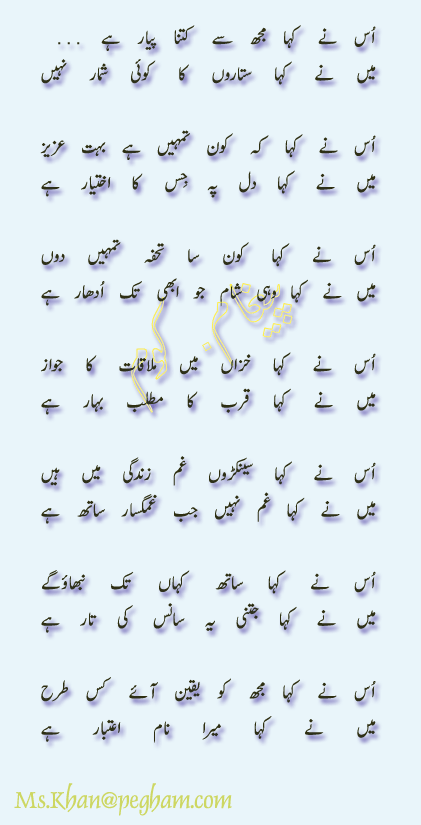 اُس نے کہا مجھ سے کتنا پیار ہے ...
میں نے کہا ستاروں کا کوئی شمار نہیں
اُس نے کہا کہ کون تمہیں ہے بہت عزیز
میں نے کہا دل پہ جِس کا اختیار ہے
اُس نے کہا کون سا تحفہ تمہیں دوں
میں نے کہا وہی شام جو ابھی تک اُدھار ہے
اُس نے کہا خزاں میں ملاقات کا جواز
میں نے کہا قرب کا مطلب بہار ہے
اُس نے کہا سینکڑوں غم زندگی میں ہیں
میں نے کہا غم نہیں جب غمگسار ساتھ ہے
اُس نے کہا ساتھ کہاں تک نبھاؤگے
میں نے کہا جتنی یہ سانس کی تار ہے
اُس نے کہا مجھ کو یقین آئے کس طرح
میں نے کہا میرا نام اعتبار ہے
Ms.Khan@pegham.com